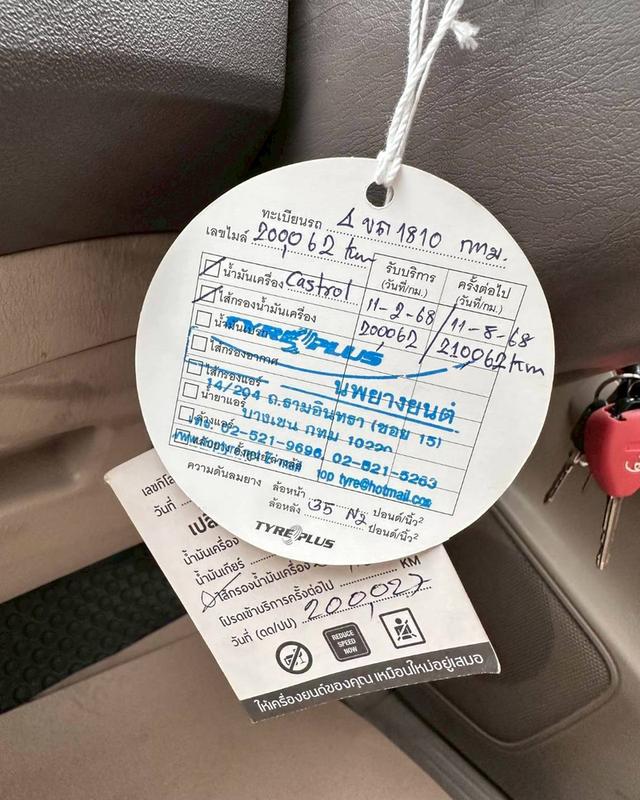 ทะเบียนรถ 4 ขภ 1810 กทม.
เลขไมล์ 200,062 km
รับบริการ (วันที่/กม.)
ครั้งต่อไป (วันที่/กม.)
น้ำมันเครื่อง Castrol 11-2-68 11-8-68
ไส้กรองน้ำมันเครื่อง 200062 210062 km
น้ำมันเบรก
TYREPLUS
ไส้กรองอากาศ
ไส้กรองแอร์
นพยางยนต์
น้ำยาแอร์
14/294 ถ.รามอินทรา (ซอย 15)
ล้างแอร์
บางเขน กทม 10220
โทร. 02-521-9696, 02-521-5263
top tyre@hotmail.com
ความดันลมยาง ล้อหน้า ปอนด์/นิ้ว²
ล้อหลัง 35 N2 ปอนด์/นิ้ว²
TYREPLUS
วันที่
น้ำมันเครื่อง
น้ำมันเกียร์
ไส้กรองน้ำมันเครื่อง KM
โปรดเข้าบริการครั้งต่อไป
วันที่ (ดด/ปป) 200,027
REDUCE
SPEED
NOW
ให้เครื่องยนต์ของคุณ เหมือนใหม่อยู่เสมอ